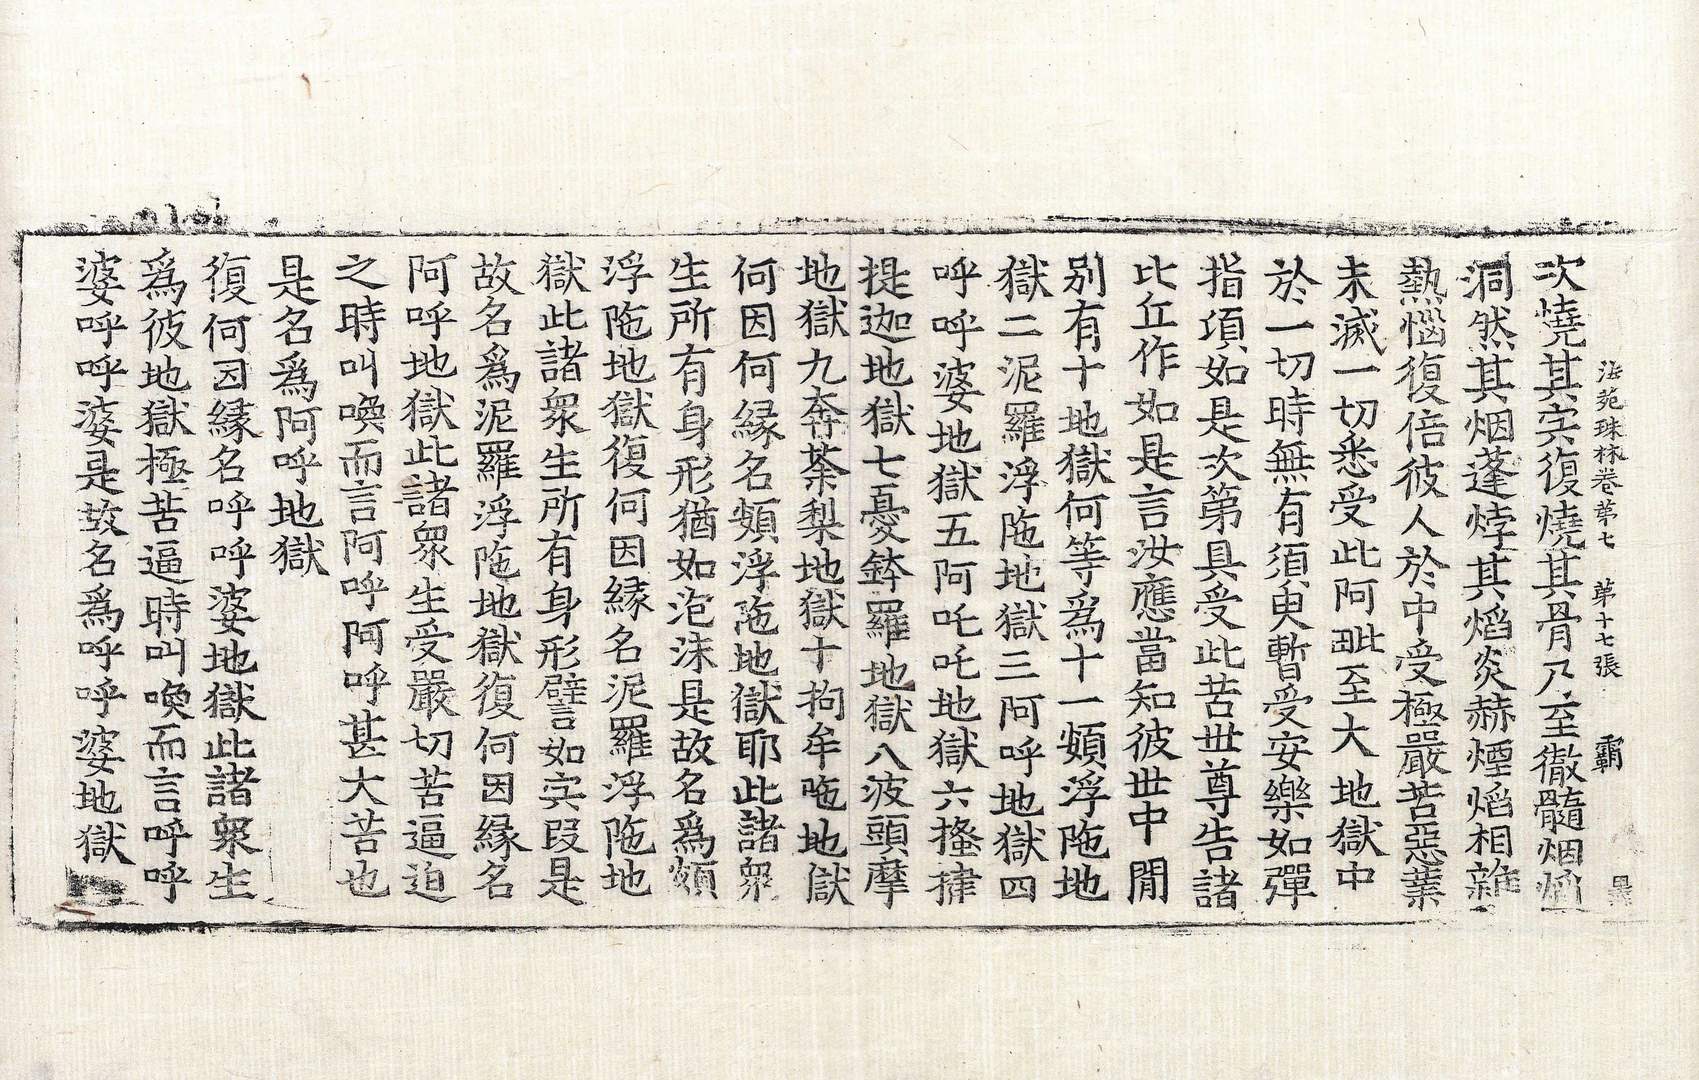 法苑珠林卷第七 第十七張 霸
次燒其宍復燒其骨乃至徹髓烟焰
洞然其烟蓬㶿其焰炎赫煙焰相雜
熱惱復倍彼人於中受極嚴苦惡業
未滅一切悉受此阿毗至大地獄中
於一切時無有須臾暫受安樂如彈
指項如是次第具受此苦世尊告諸
比丘作如是言汝應當知彼世中間
別有十地獄何等為十一頞浮陁地
獄二泥羅浮陁地獄三阿呼地獄四
呼呼婆地獄五阿吒吒地獄六搔揵
提迦地獄七憂鉢羅地獄八波頭摩
地獄九奔荼梨地獄十拘牟陁地獄
何因何緣名頞浮陁地獄耶此諸衆
生所有身形猶如泡沫是故名爲頞
浮陁地獄復何因緣名泥羅浮陁地
獄此諸衆生所有身形譬如宍段是
故名爲泥羅浮陁地獄復何因緣名
阿呼地獄此諸衆生受嚴切苦逼迫
之時叫喚而言阿呼阿呼甚大苦也
是名爲阿呼地獄
復何因緣名呼呼婆地獄此諸衆生
爲彼地獄極苦逼時叫喚而言呼呼
婆呼呼婆是故名爲呼呼婆地獄